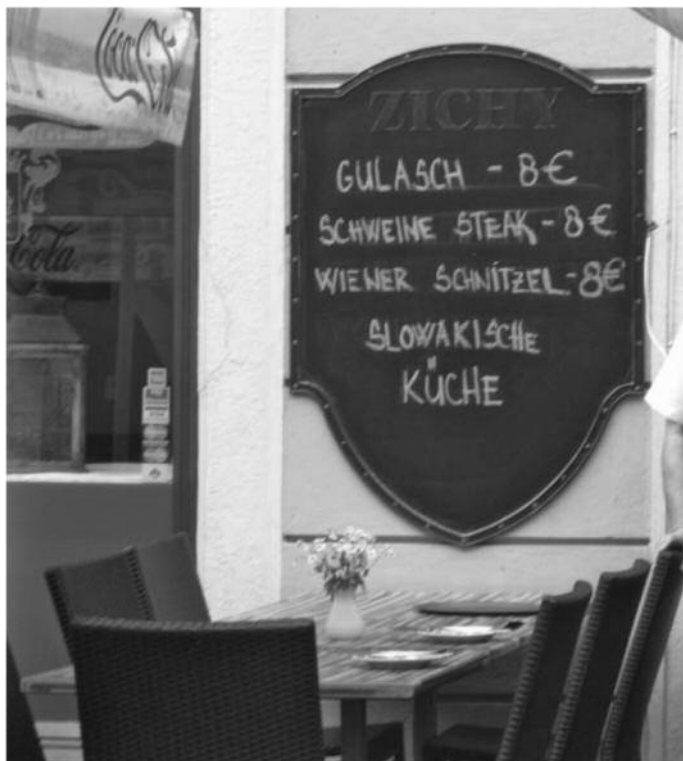 Coca-Cola
Cola
ZICHY
GULASCH - 8€
SCHWEINE STEAK - 8€
WIENER SCHNITZEL - 8€
SLOWAKISCHE
KÜCHE